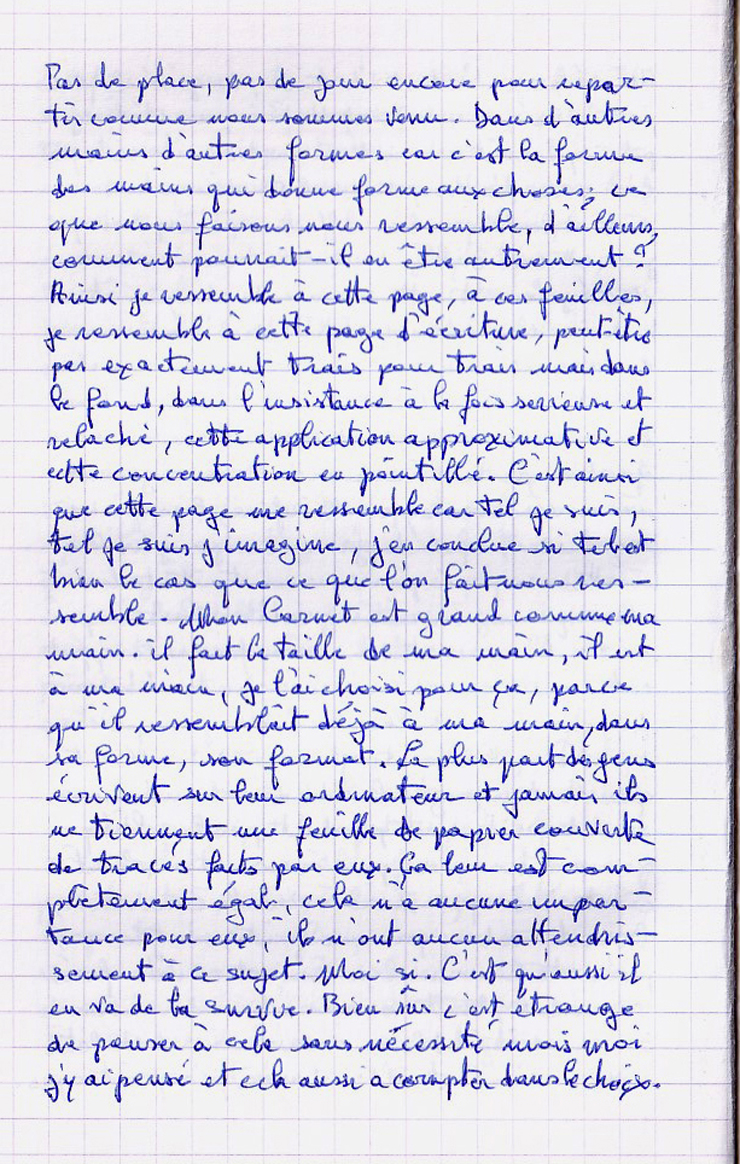 Pas de place, pas de jour encore pour repar-
tir comme nous sommes venu. Dans d'autres
mains d'autres formes car c'est la forme
des mains qui donne forme aux choses; ce
que nous faisons nous ressemble, d'ailleurs,
comment pourrait-il en être autrement ?
Ainsi je ressemble à cette page, à ces feuilles,
je ressemble à cette page d'écriture, peut-être
pas exactement trais pour trais mais dans
le fond, dans l'insistance à la fois serieuse et
relaché, cette application approximative et
cette concentration en pointillé. C'est ainsi
que cette page me ressemble car tel je suis,
tel je suis j'imagine, j'en conclue si tel est
bien le cas que ce que l'on fait nous res-
semble. Mon Carnet est grand comme ma
main. il fait la taille de ma main, il est
à ma main, je l'ai choisi pour ça, parce
qu'il ressemblait déjà à ma main, dans
sa forme, son format. La plus part des gens
écrivent sur leur ordinateur et jamais ils
ne tiennent une feuille de papier couverte
de tracés faits par eux. Ça leur est com-
plètement égal, cela n'a aucune impor-
tance pour eux, ils n'ont aucun attendris-
sement à ce sujet. Moi si. C'est qu'aussi il
en va de la survie. Bien sûr c'est étrange
de penser à cela sans nécessité mais moi
j'y ai pensé et cela aussi a compter dans le choix.